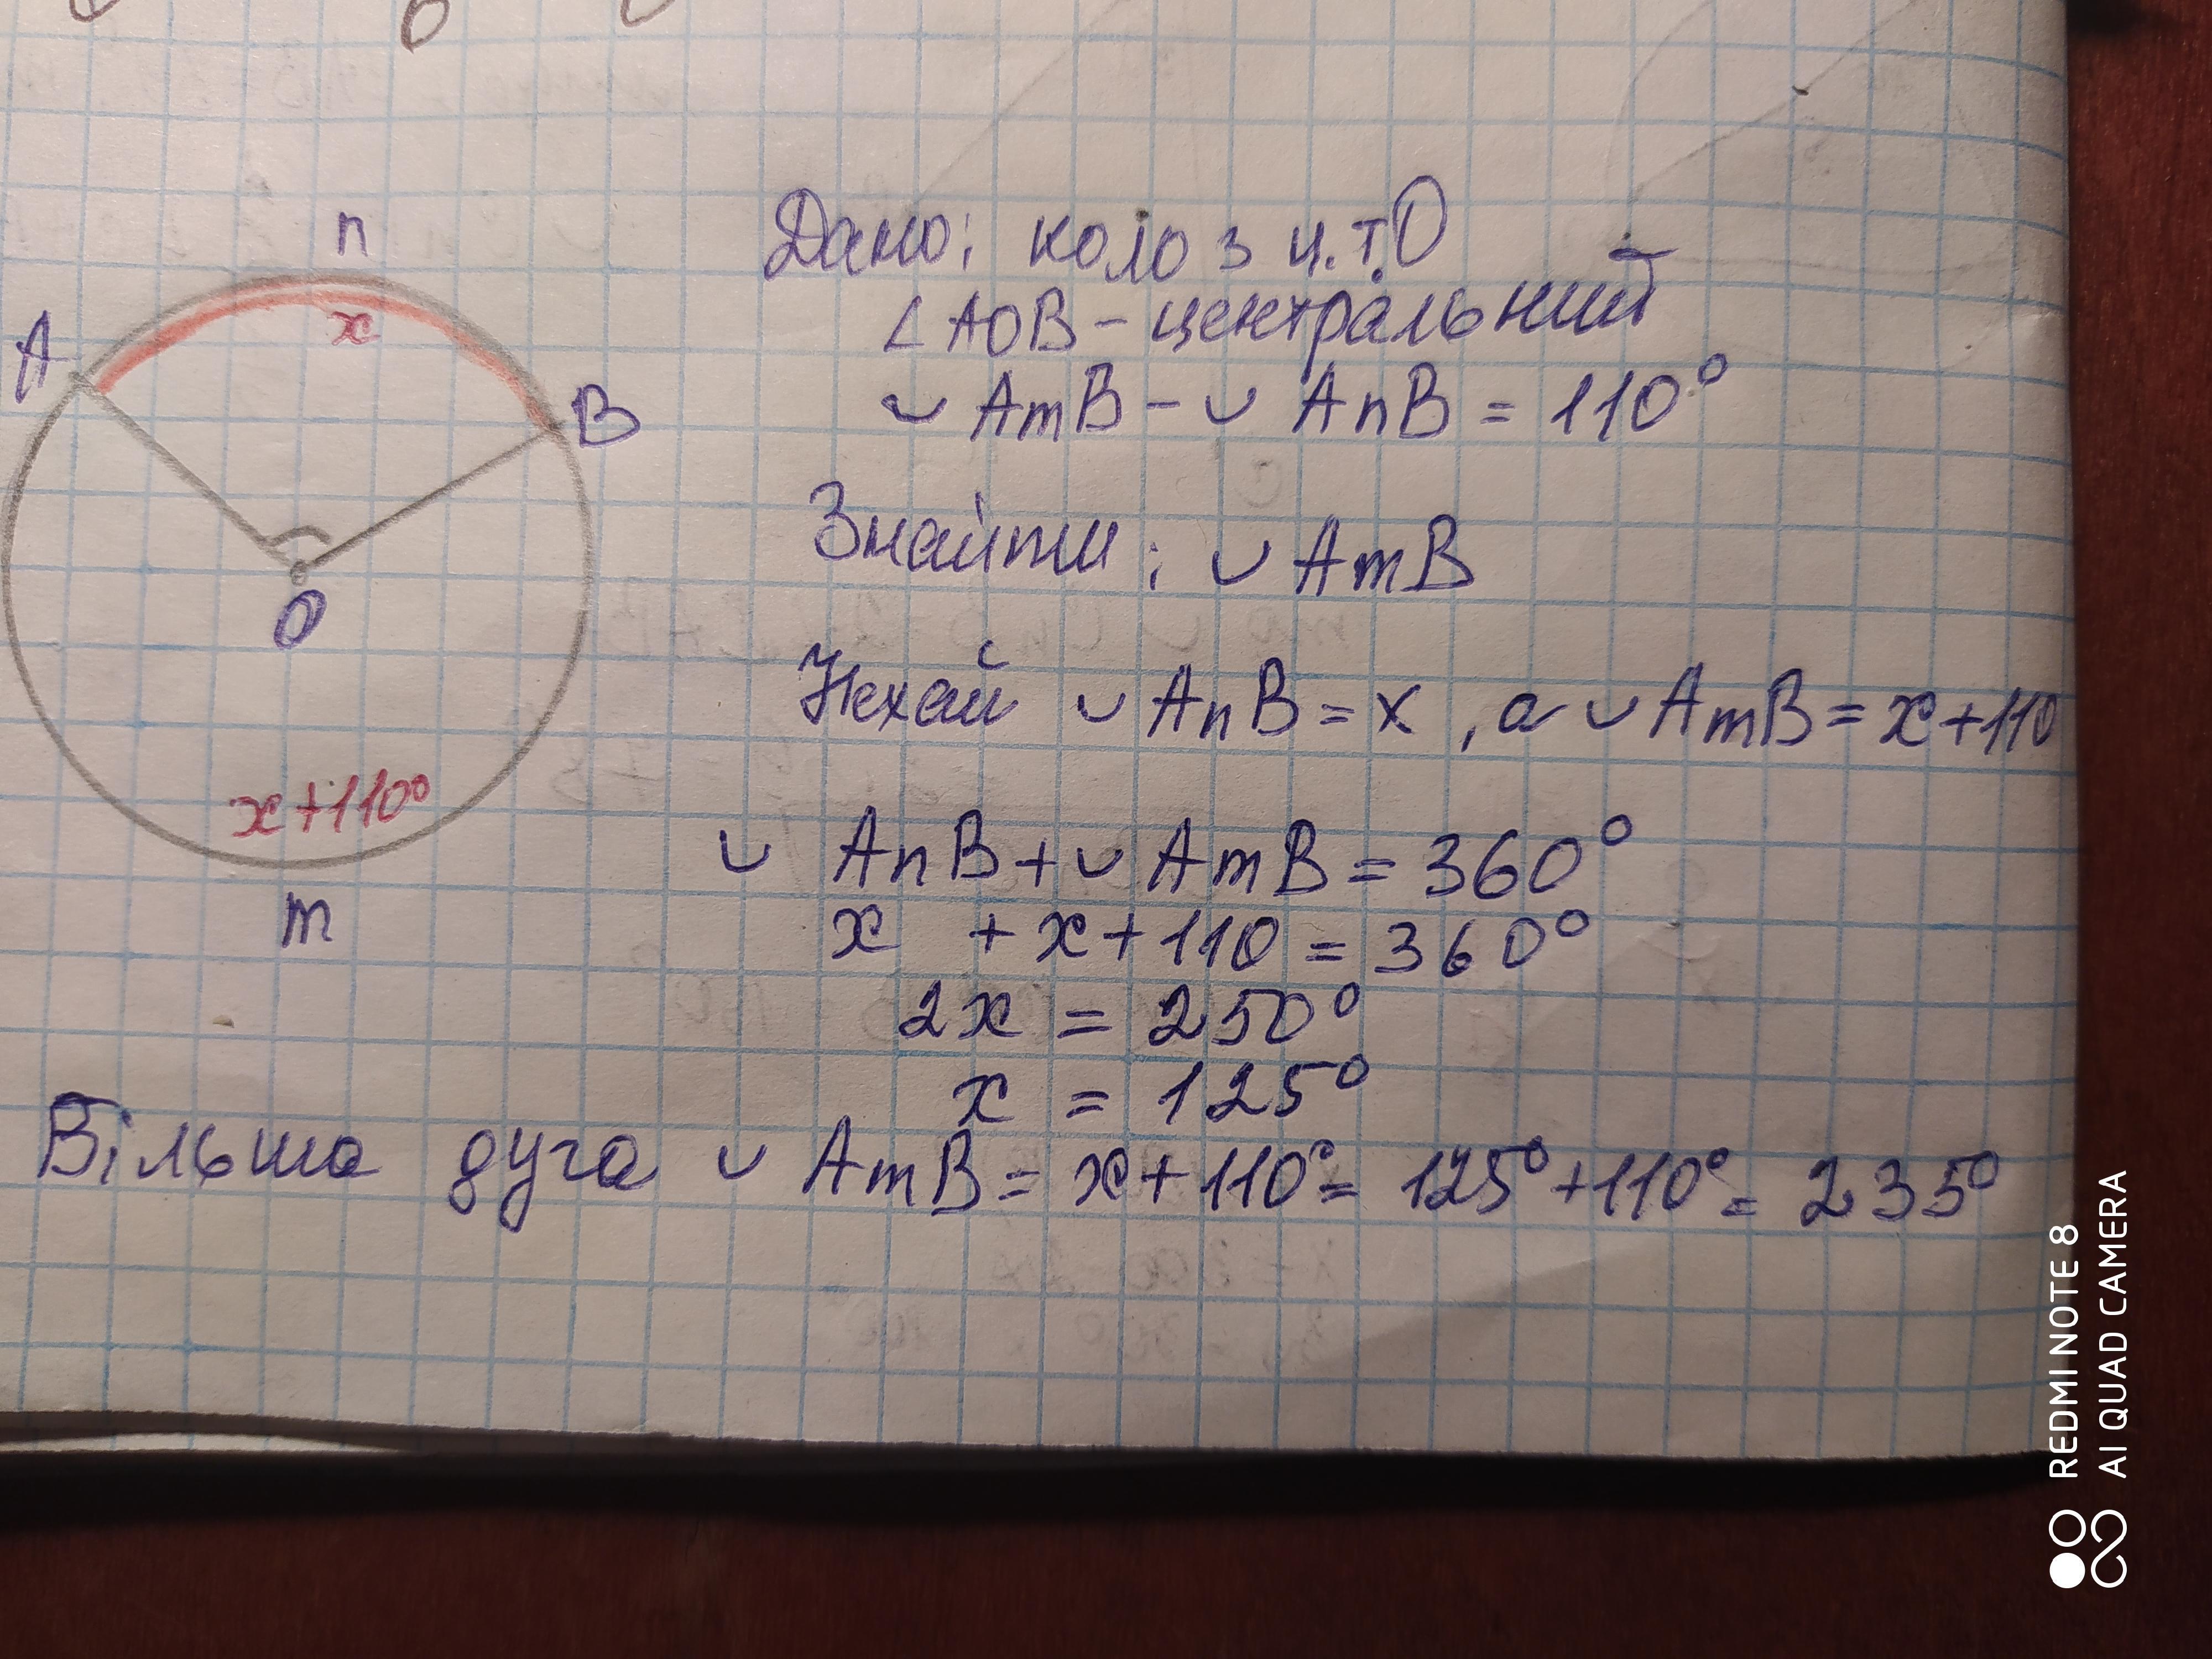 n
A
x
B
O
x+110°
m
Дано: коло з ц.т.О
∠AOB – центральний
◡ AmB – ◡ AnB = 110°
Знайти: ◡ AmB
Нехай ◡ AnB = x, а ◡ AmB = x+110
◡ AnB + ◡ AmB = 360°
x + x + 110 = 360°
2x = 250°
x = 125°
Більша дуга ◡ AmB = x+110° = 125°+110° = 235°
REDMI NOTE 8
AI QUAD CAMERA